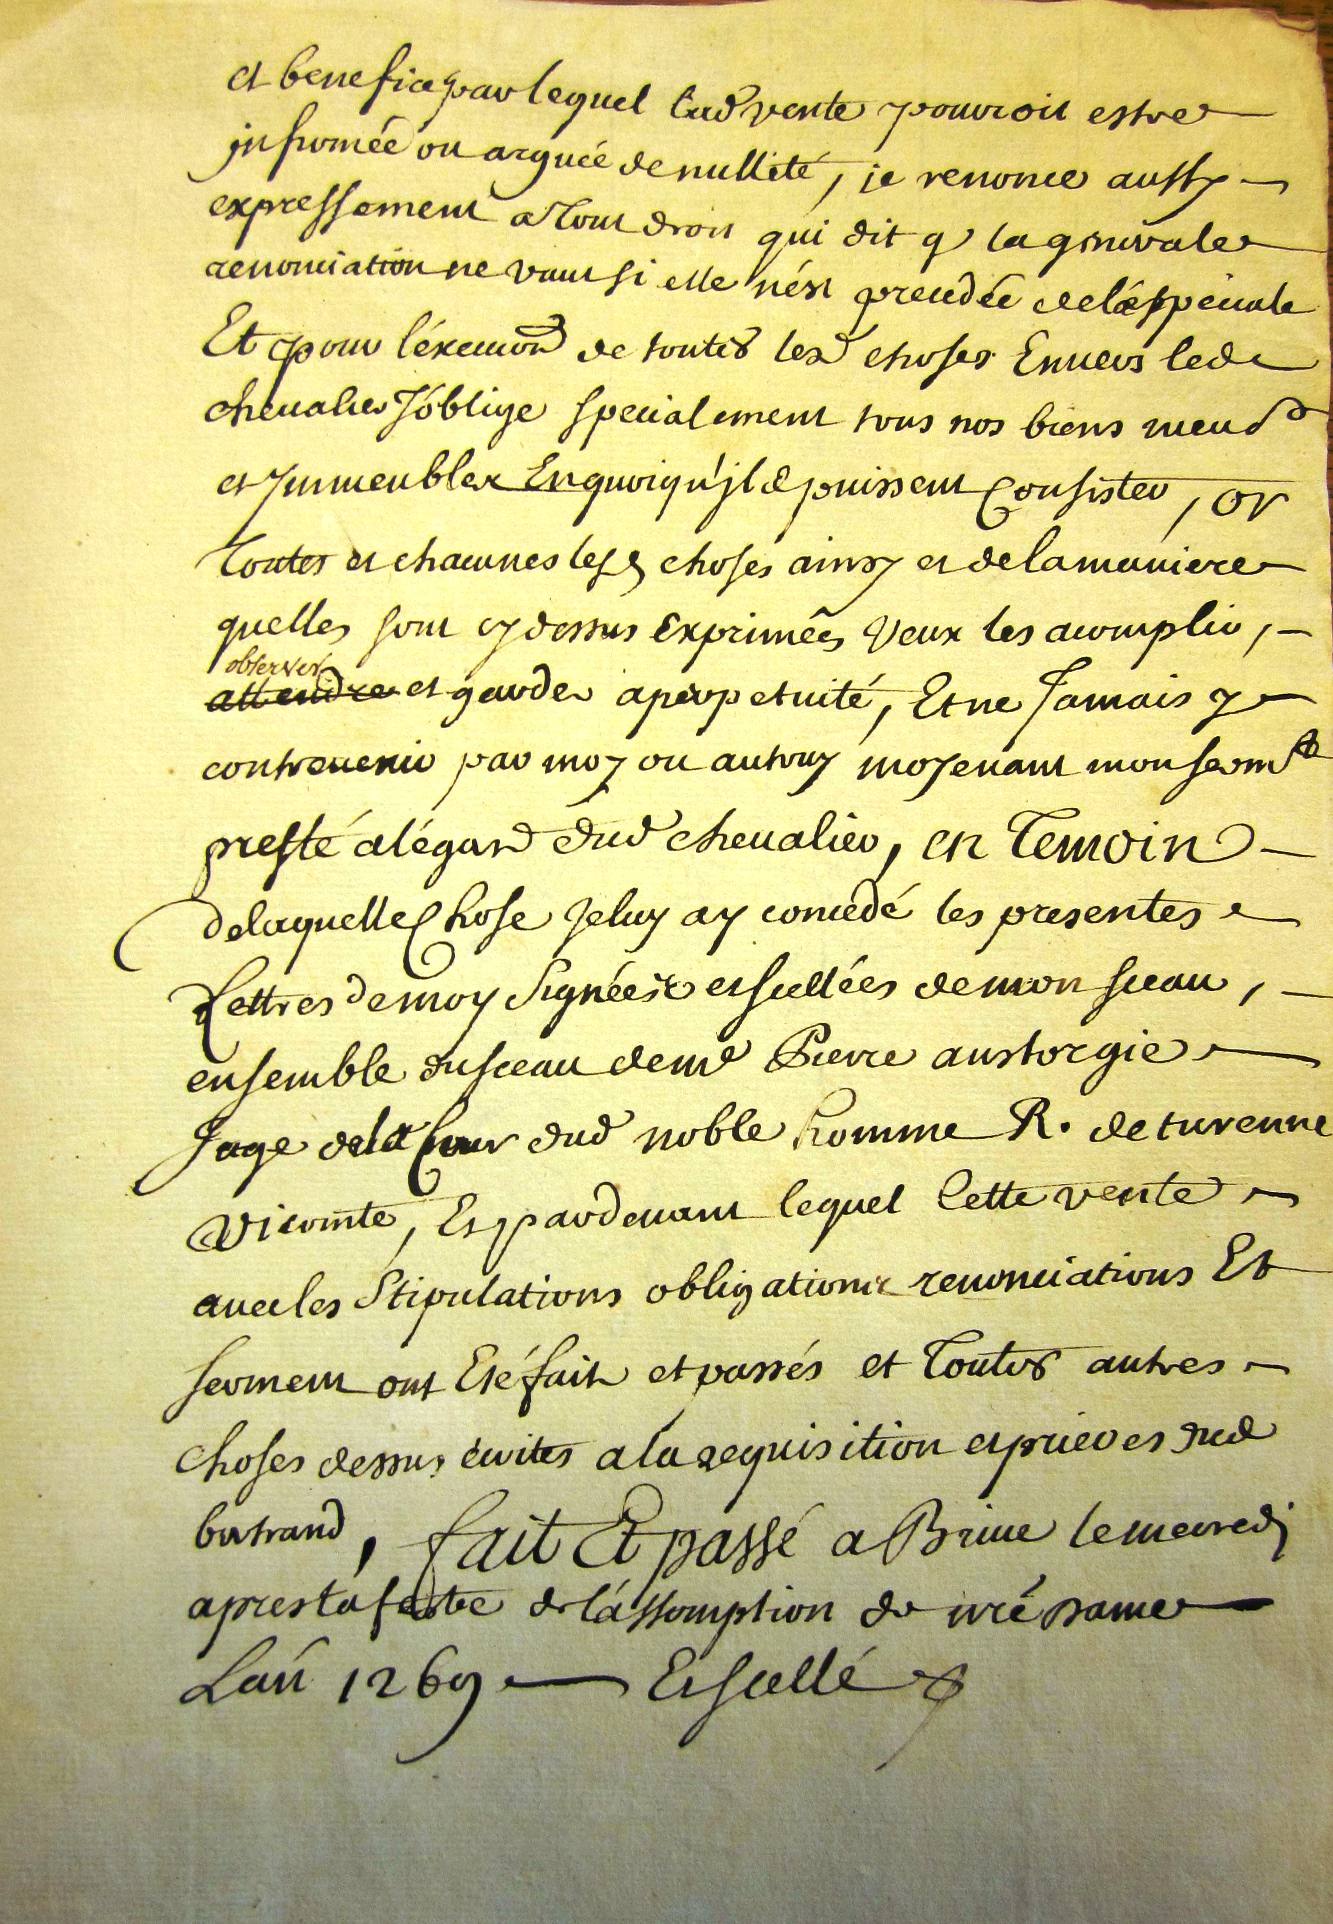 et benefice par lequel lad vente pouvroit estre
jnfirmée ou arguée de nullité, je renonce aussy
expressement a tout droit qui dit q la gnnerale
renonciation ne vaut si elle nést precedée delaspeciale
Et pour léxecuon de toutes lesd choses Envers led
chevalier J'óblige specialement tous nos biens meub
et Jmmeubles En quoiqu'jls puissent Consister, or
toutes et chacunes lesd choses ainsy et delamaniere
quelles sont cy dessus Exprimées Veux les acomplir,
observer
attendre et garder aperpetuité, Et ne Jamais y
contrevenir par moy ou autruy moyenant mon serm
presté alégard dud chevalier, en Temoin
delaquelle Chose Jeluy ay concedé les presentes
Lettres de moy Signées et scellées demon sceau,
ensemble du sceau deme Pierre austorgie
Juge dela Cour dud noble homme R. de turenne
Vicomte, Et pardevant lequel Cette vente
avec les Stipulations obligations renonciations Et
serment ont Eté fait et passés et Toutes autres
choses dessus écrites a la requisition et prieres dud
bertrand, fait Et passé a Brive le mercredj
apres la feste de lássomption de nré Dame
Lan 1269 Et scellé